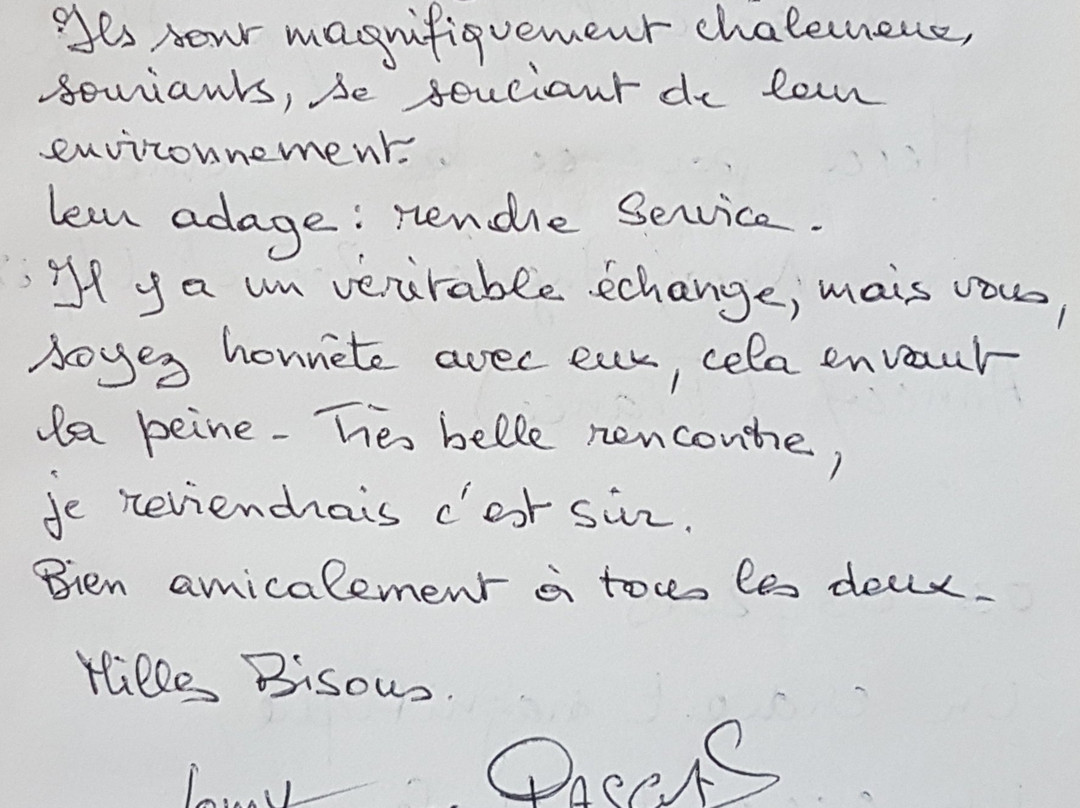 Ils sont magnifiquement chaleureux,
souriants, se souciant de leur
environnement.
leur adage : rendre Service.
Il y a un véritable échange, mais vous,
soyez honnête avec eux, cela en vaut
la peine - Très belle rencontre,
je reviendrais c'est sûr.
Bien amicalement à tous les deux -
Milles Bisous.